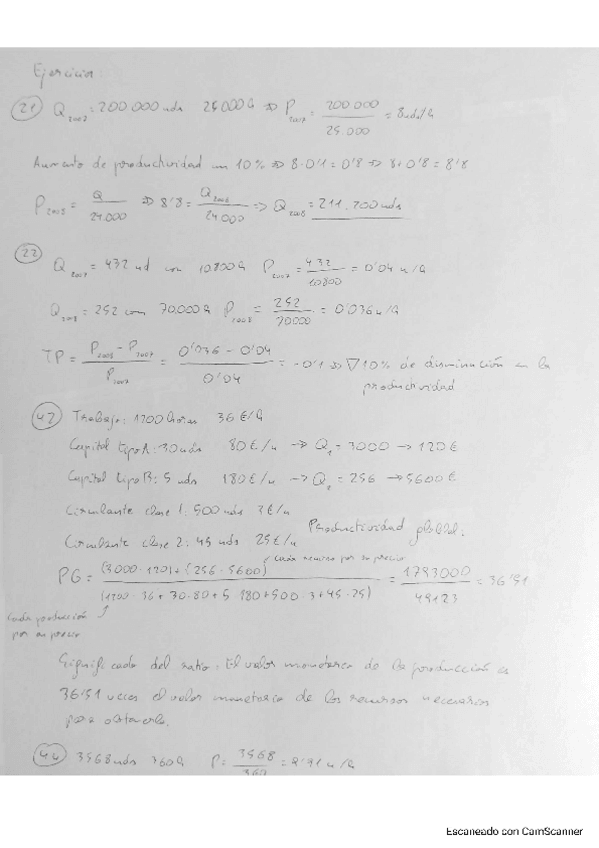 Ejercicios
21 Q2007 = 200.000 uds 25000h ⇒ P2007 = 200.000 / 25.000 = 8uds/h
Aumento de productividad un 10% ⇒ 8·0'1 = 0'8 ⇒ 8+0'8 = 8'8
P2008 = Q / 24.000 ⇒ 8'8 = Q2008 / 24.000 ⇒ Q2008 = 211.200 uds
22 Q2007 = 432 ud con 10800h P2007 = 432 / 10800 = 0'04 u/h
Q2008 = 252 con 70.000h P2008 = 252 / 70000 = 0'036 u/h
TP = P2008 - P2007 / P2007 = 0'036 - 0'04 / 0'04 = -0'1 ⇒ ∇ 10% de disminución en la
productividad
Trabajo: 1200 horas 36 €/h
Capital tipo A: 30 uds 80 €/u → Q1 = 3000 → 120 €
Capital tipo B: 5 uds 180 €/u → Q2 = 256 → 5600 €
Circulante clase 1: 500 uds 3€/u
Circulante clase 2: 45 uds 25€/u Productividad global.
cada recurso por su precio
PG = (3000·120) + (256·5600) / (1200·36 + 30·80 + 5·180 + 500·3 + 45·25) = 1793000 / 49123 = 36'51
Cada producción
por su precio
Significado del ratio: El valor monetario de la producción es
36'51 veces el valor monetario de los recursos necesarios
para obtenerla.
44 3568 uds 360h P = 3568 / 360 = 9'91 u/h
Escaneado con CamScanner